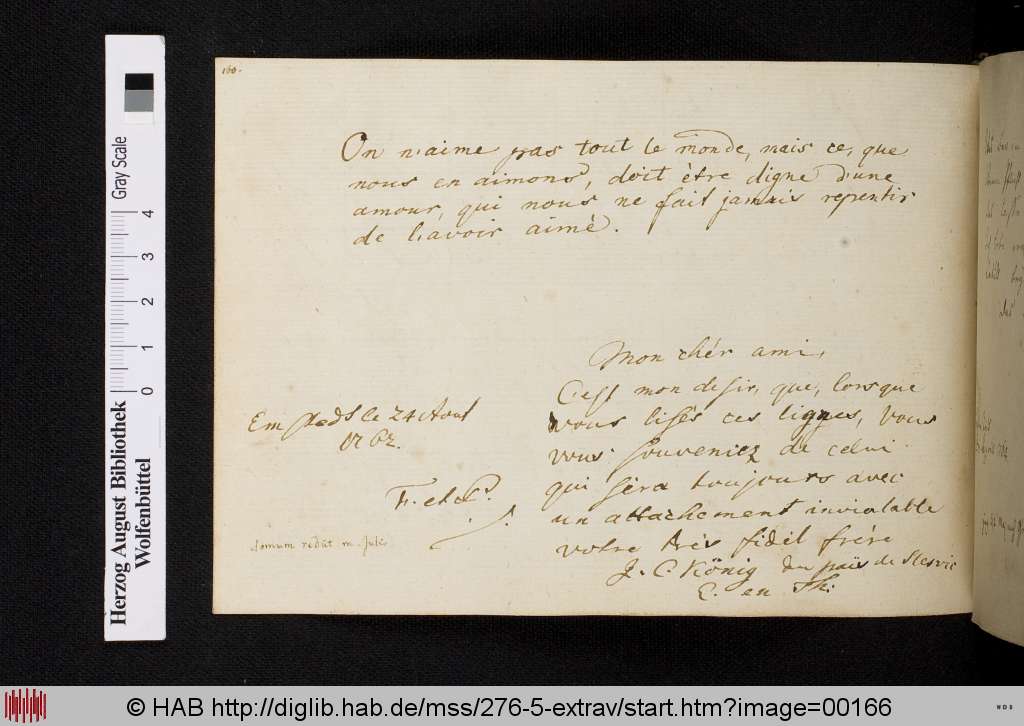 160.
On n'aime pas tout le monde, mais ce, que
nous en aimons, doit être digne d'une
amour, qui nous ne fait jamais repentir
de l'avoir aimé.
Mon chér ami,
C'est mon desir, que, lorsque
vous lisés ces lignes, vous
vous souveniez de celui
qui séra toujours avec
un attachement inviolable
votre très fidél frére
J. C. König du païs de Slesvic
C. en Th.
le 24 Aout
1762.
F. et C.
domum rediit m. Julii
Herzog August Bibliothek
Wolfenbüttel
Gray Scale
0 1 2 3 4
© HAB http://diglib.hab.de/mss/276-5-extrav/start.htm?image=00166
HAB